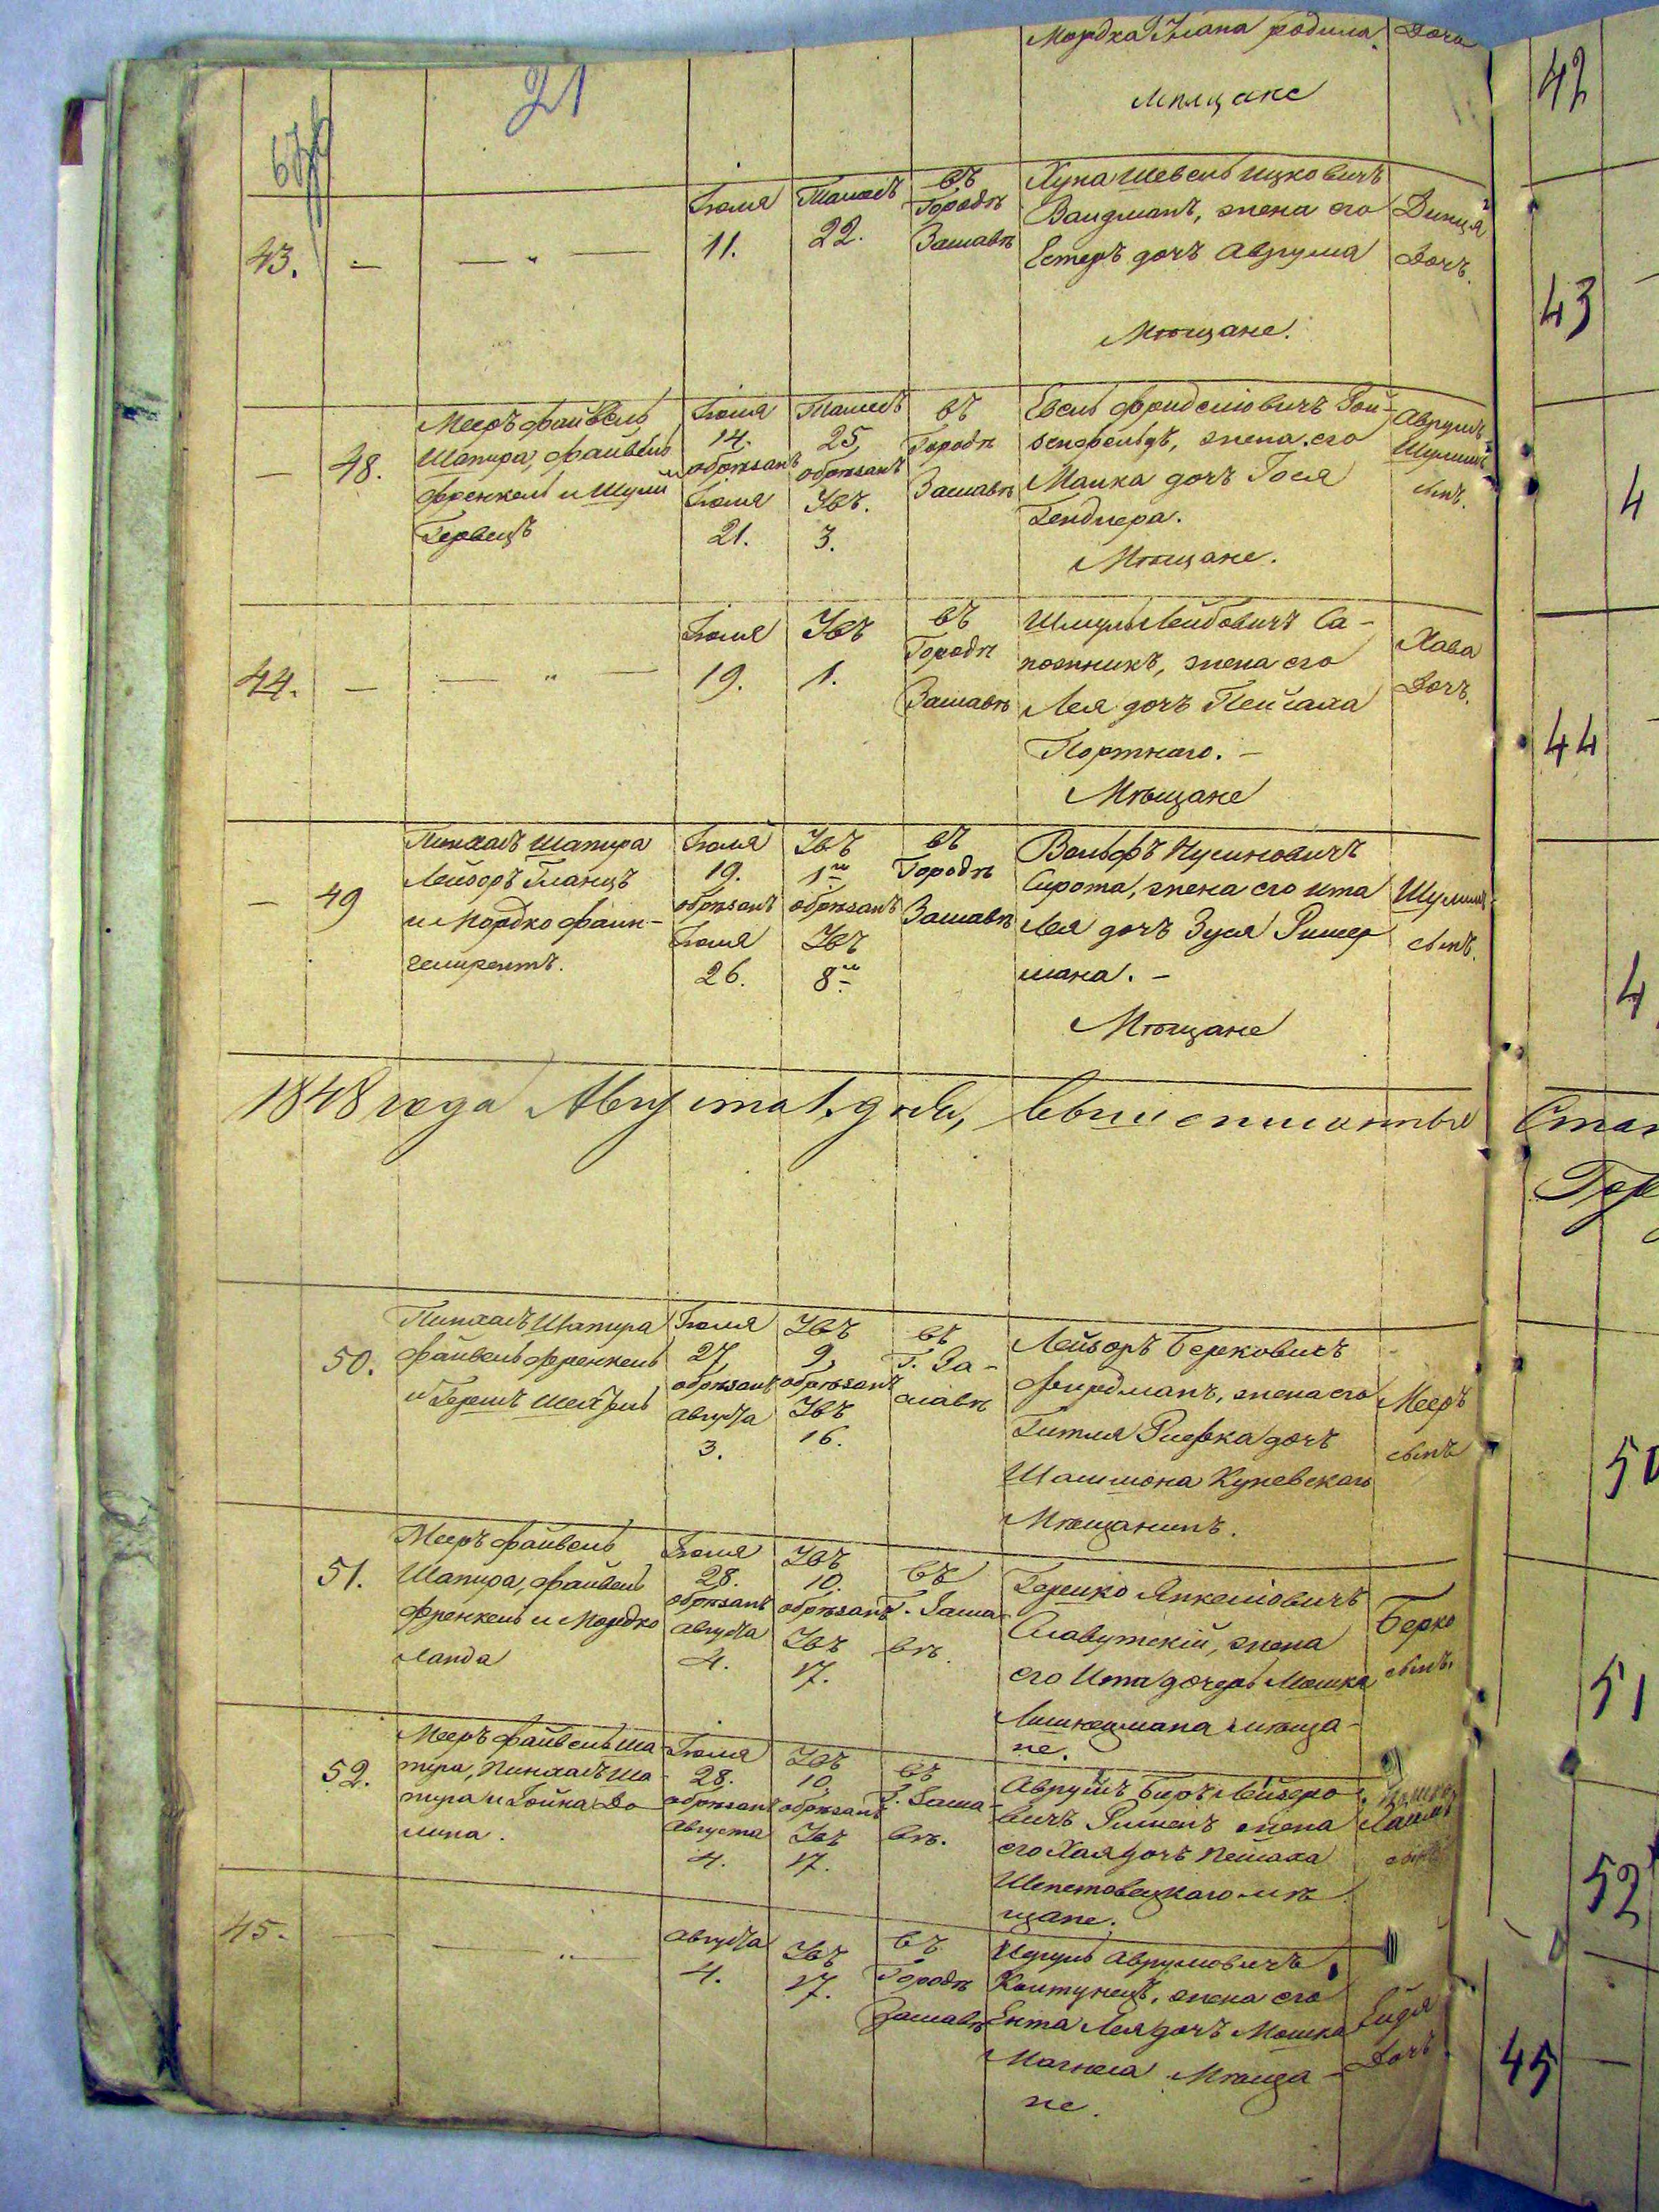 Мордка Злата родила Дочь
Мѣщане
21
43. — — „ — Іюля 11. Тамозъ 22. въ Городѣ Заславѣ
Хуна Шевель Ицковичъ
Вайдманъ, жена его
Естеръ дочъ Аврума
Мѣщане.
Двиця
Дочъ.
— 48.
Мееръ Файвель
Шапира, Файвель
Френкель и Шулим
Гервецъ
Іюля 14. обрѣзанъ Іюля 21.
Тамозъ 25, обрѣзанъ Увъ. 3.
въ Городѣ Заславѣ
Евель Фройдемовичъ Гой-
зенфельдъ, жена его
Малка дочъ Госея
Гендлера.
Мѣщане.
Аврумъ-
Шулимъ
сынъ.
44. — — „ — Іюля 19. Увъ 1. въ Городѣ Заславѣ
Шмуль Лейбовичъ Са-
пожникъ, жена его
Лея дочъ Пейсаха
Портнаго. —
Мѣщане
Хава
Дочъ.
— 49
Пинхасъ Шапира
Лейзоръ Гланцъ
и Мордко Файн-
Іюля 19. обрѣзанъ Іюля 26.
Увъ 1го обрѣзанъ Увъ 8го
въ Городѣ Заславѣ
Вольфъ Нусиновичъ
Сирота, жена его Ита
Лея дочъ Зуся Ример
мана. —
Мѣщане
Шулимъ
сынъ.
1848 года Августа 1. дня,
50.
Пинхасъ Шапира
Файвель Френкель
и Гершъ
Іюля 27, обрѣзанъ августа 3.
Увъ 9, обрѣзанъ Увъ 16.
въ Г. За-
славѣ
Лейзоръ Берковичъ
Фирдманъ, жена его
Гитля Рифка дочъ
Шашмона Куневскаго
Мѣщанинъ.
Мееръ
сынъ
51.
Мееръ Файвель
Шапира, Файвель
Френкель и Мордко
Ланда
Іюля 28. обрѣзанъ августа 4.
Увъ 10. обрѣзанъ Увъ 17.
въ Г. Засла-
вѣ.
Гершко Янкелiовичъ
Славутскій, жена
его Ита дочерь Мошка
мѣща-
не.
Берко
сынъ.
52.
Мееръ Файвель Ша-
пира, Пинхасъ Ша-
пира и Іойна До-
лина.
Іюля 28. обрѣзанъ августа 4.
Увъ 10, обрѣзанъ Увъ 17.
въ Г. Засла-
вѣ.
Аврумъ Беръ Лейзеро-
вичъ жена
его Хая дочъ Пейсаха
Шепетовецкаго мѣ
щане.
45. — — „ — августа 4. Увъ 17. въ Городѣ Заславѣ
Идуль Аврумовичъ
Колтунецъ, жена его
Ента Лея дочъ Мошка
Магнеса Мѣща-
не.
Ейдя
Дочъ.
42
43
4
44
4
50
51
52
45